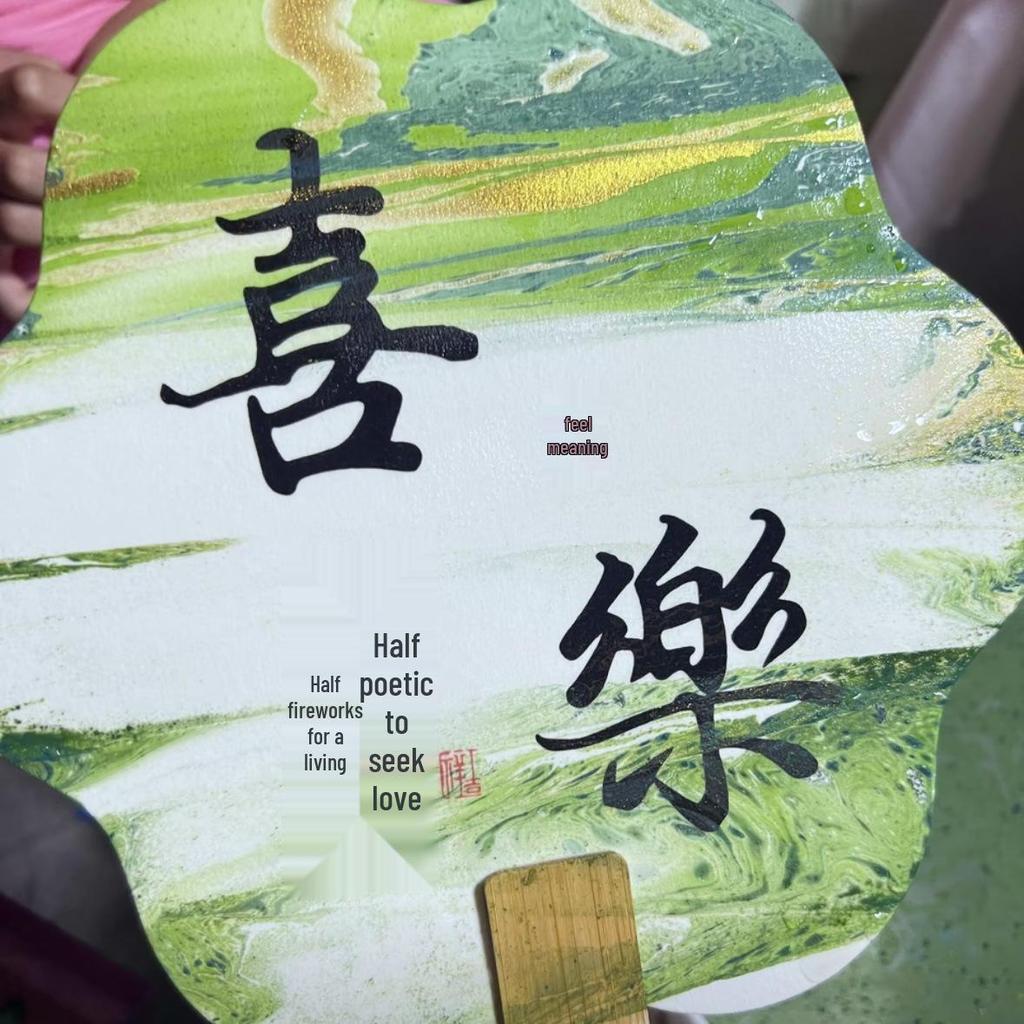 喜
feel
meaning
樂
Half
poetic
to
seek
love
Half
fireworks
for a
living